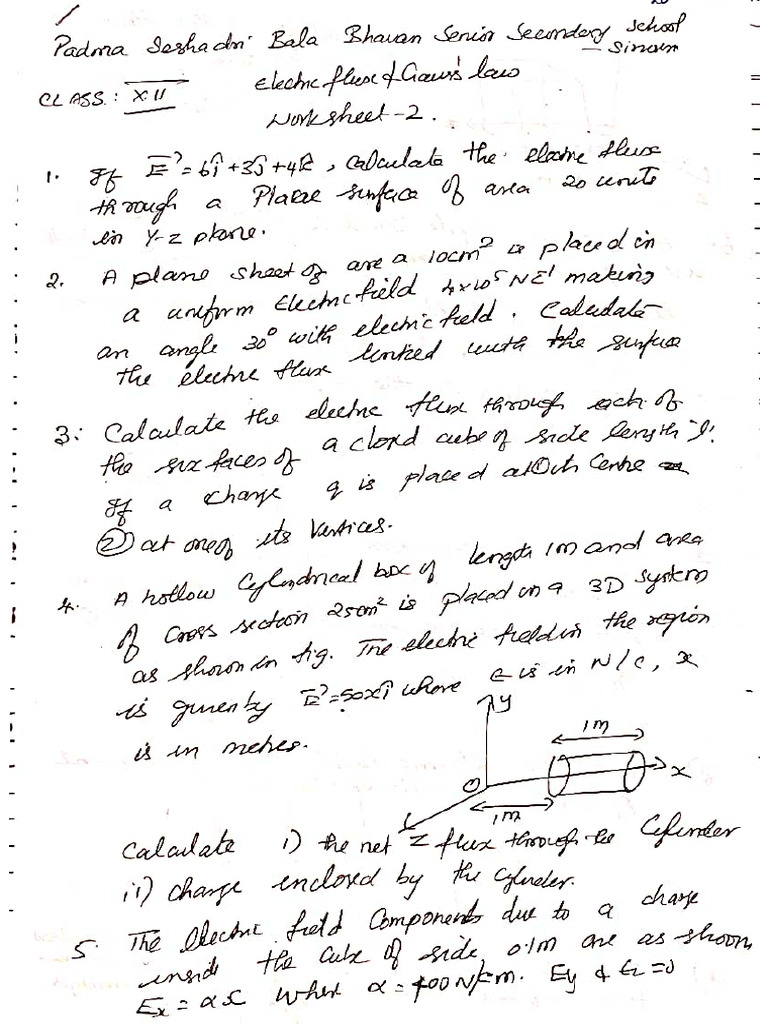 Padma Seshadri Bala Bhavan Senior Secondary School
- Sircar
Electric flux & Gauss's law
CLASS : XII
Worksheet-2.
1. If E⃗ = 6î+3ĵ+4k̂, calculate the electric flux
through a Plane surface of area 20 units
in Y-Z plane.
2. A plane sheet of area 10cm² is placed in
a uniform Electric field 4x10⁵ NC⁻¹ making
an angle 30° with electric field. Calculate
the electric flux linked with the surface
3: Calculate the electric flux through each of
the six faces of a closed cube of side length 'l'.
If a charge q is placed at ① its Centre
② at one of its Vertices.
4. A hollow Cylindrical box of length 1m and area
of Cross section 25cm² is placed in a 3D system
as shown in fig. The electric field in the region
is given by E⃗ = 50xî where E is in N/C, x
is in metres.
y
1m
O
x
1m
Z
Calculate i) the net flux through the Cylinder
ii) charge enclosed by the Cylinder.
5. The Electric field Components due to a charge
inside the Cube of side 0.1m are as shown,
Ex = αx where α = 400N/C-m. Ey & Ez = 0